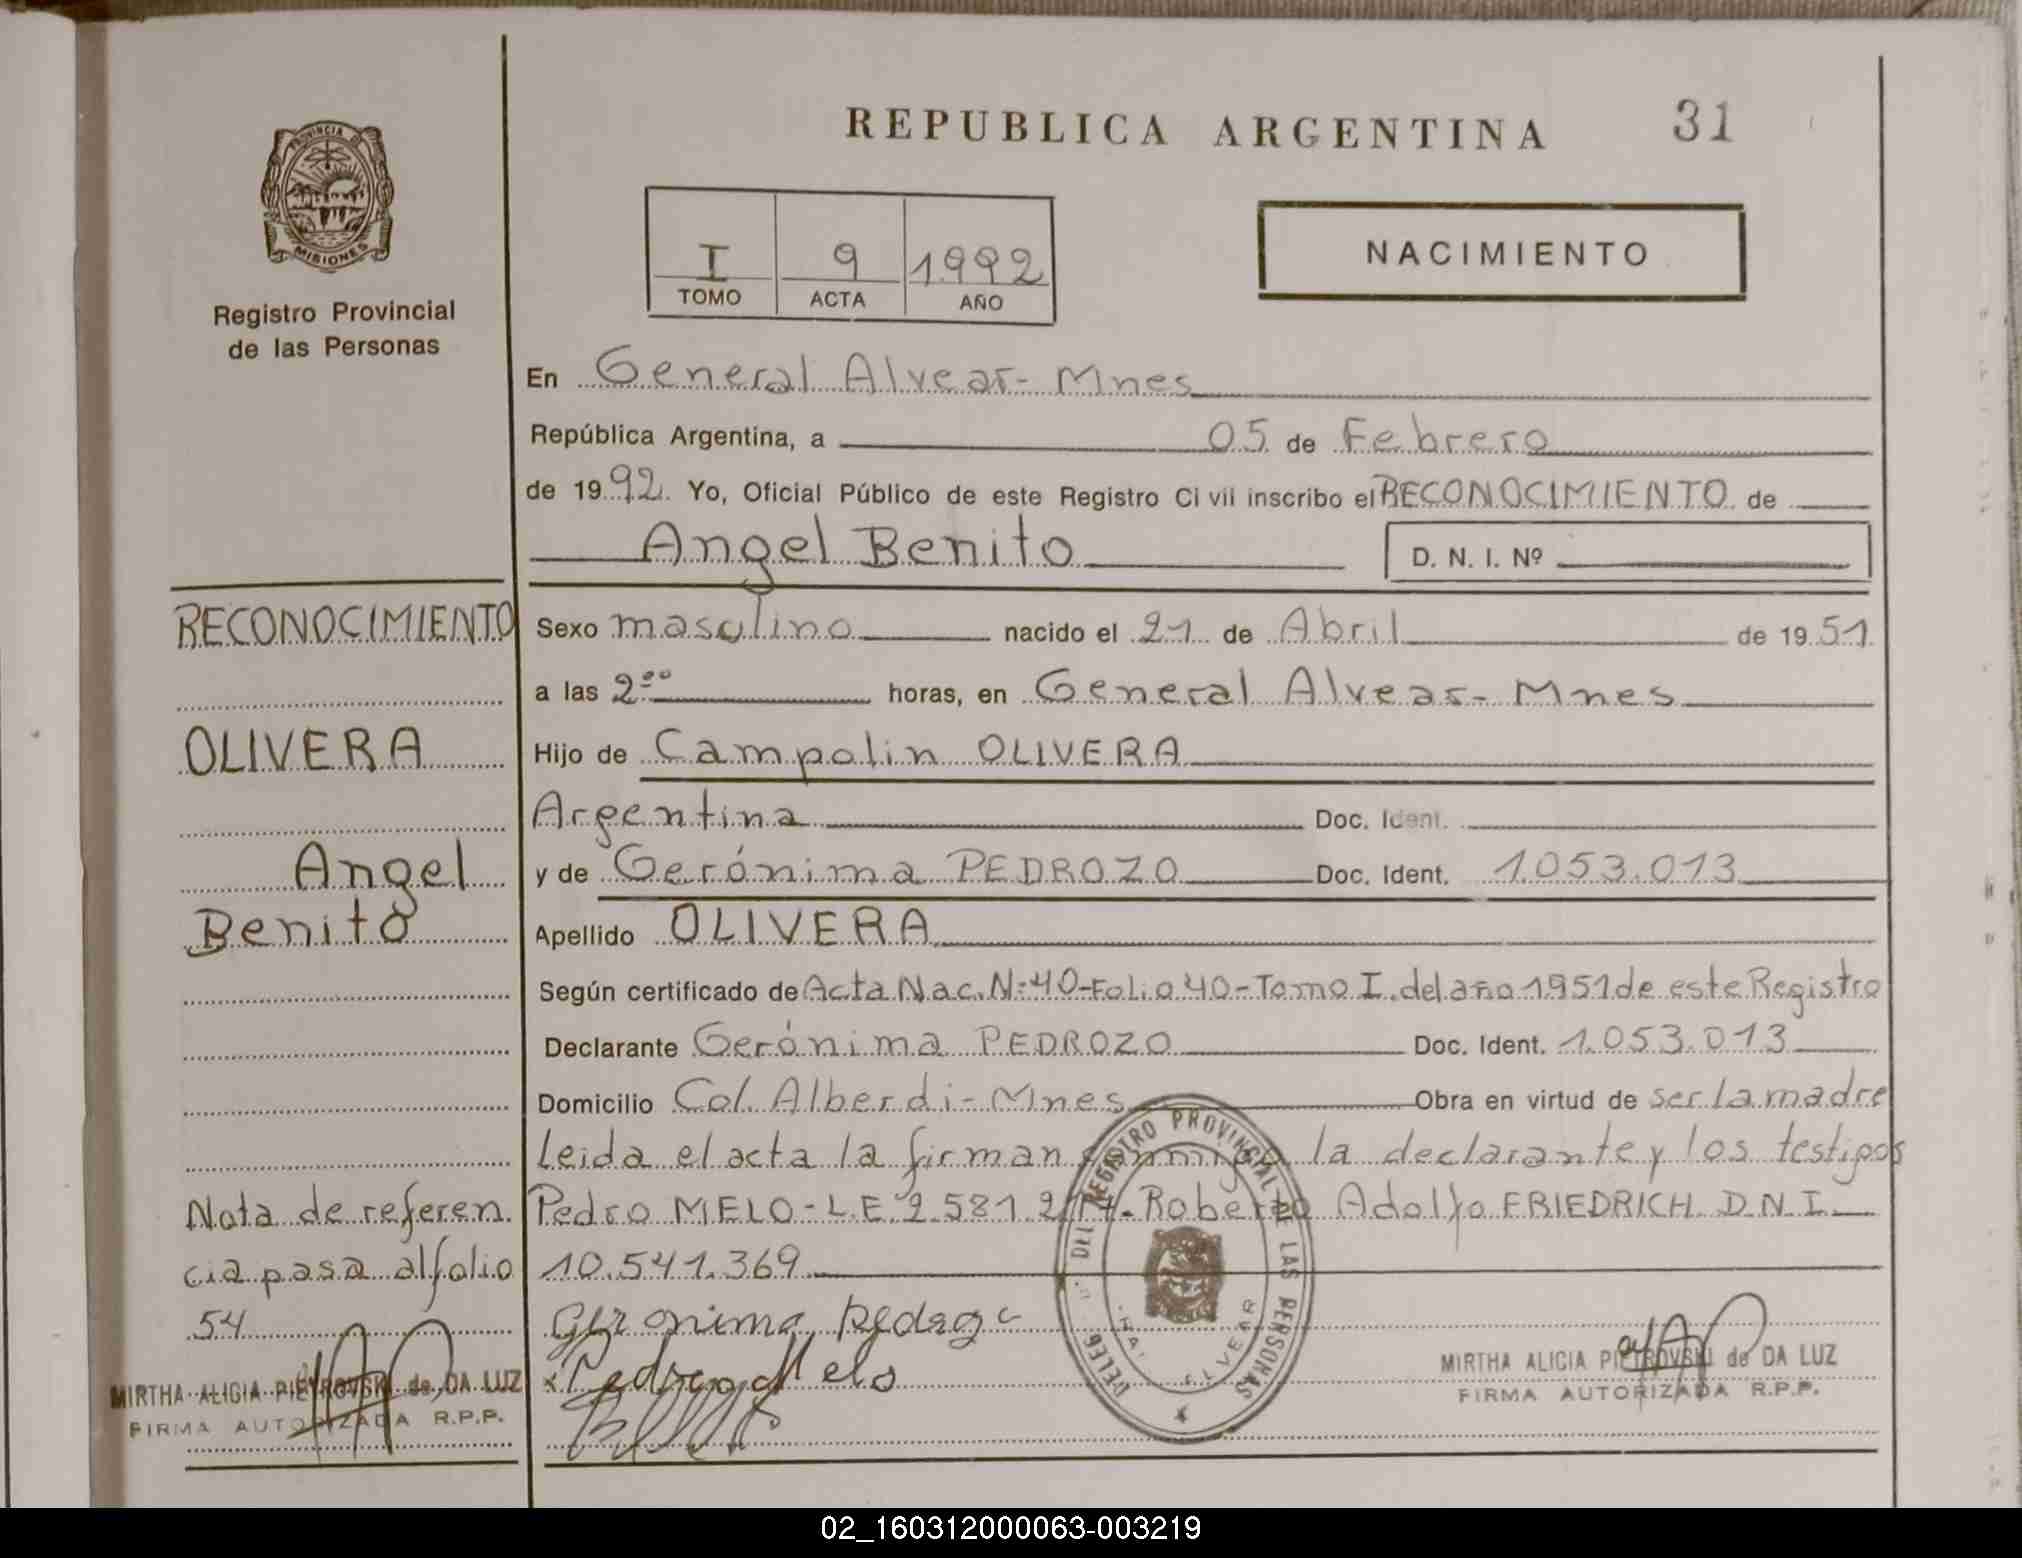 REPUBLICA ARGENTINA 31
PROVINCIA DE
MISIONES
Registro Provincial
de las Personas
I 9 1992
TOMO ACTA AÑO
NACIMIENTO
En General Alvear - Mnes
República Argentina, a 05 de Febrero
de 1992. Yo, Oficial Público de este Registro Ci vil inscribo el RECONOCIMIENTO de
Angel Benito D. N. I. Nº
RECONOCIMIENTO
OLIVERA
Angel
Benito
Nota de referen
cia pasa al folio
54
MIRTHA ALICIA PIETROVSKI de DA LUZ
FIRMA AUTORIZADA R.P.P.
Sexo masculino nacido el 21 de Abril de 1951
a las 2.00 horas, en General Alvear - Mnes
Hijo de Campolin OLIVERA
Argentina Doc. Ident.
y de Gerónima PEDROZO Doc. Ident. 1.053.013
Apellido OLIVERA
Según certificado de Acta Nac. Nº 40-Folio 40-Tomo I. del año 1951 de este Registro
Declarante Gerónima PEDROZO Doc. Ident. 1.053.013
Domicilio Col. Alberdi - Mnes Obra en virtud de ser la madre
Leida el acta la firman conmigo la declarante y los testigos
Pedro MELO - L.E. 2.581.214. Roberto Adolfo FRIEDRICH D.N.I.
10.541.369
Geronima
Pedro Melo
DELEG DEL REGISTRO PROVINCIAL DE LAS PERSONAS
MIRTHA ALICIA PIETROVSKI de DA LUZ
FIRMA AUTORIZADA R.P.P.
02_160312000063-003219